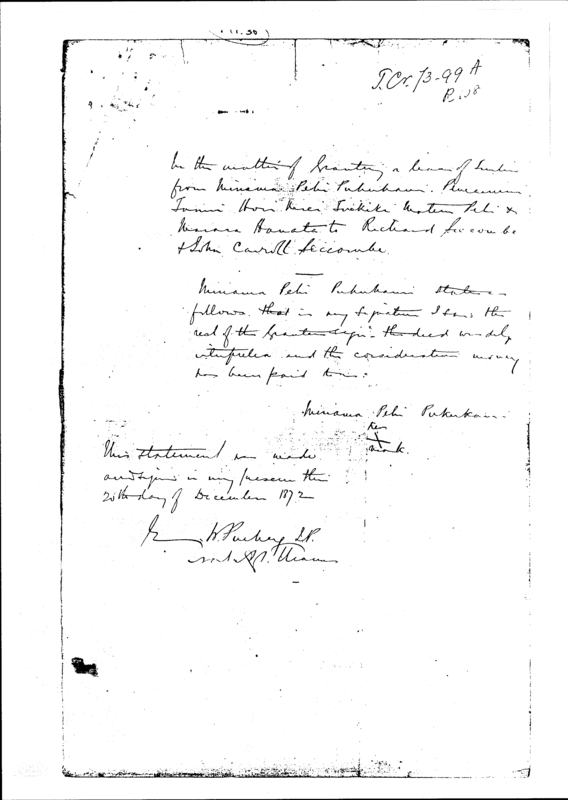 T.Cr. 73-99 A
P. 28
In the matter of Granting a lease of
from Miriama Pehi Pukukauri
Tamui Hori Suckiki Matene Pehi &
Hamata to Richard Seccombe
& John Carroll Seccombe.
Miriama Pehi Pukukauri states as
follows that is my signature I saw the
rest of the Grantors sign - the deed was duly
interpreted and the consideration money
has been paid to us.
Miriama Pehi Pukukauri
her
X
mark.
This statement was made
and signed in my presence this
20th day of December 1872
J.P.